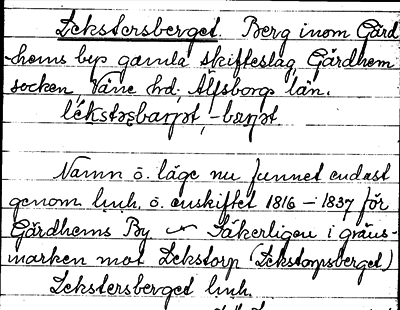 Lekstersberget. Berg inom Gärd-
hems bys gamla skifteslag, Gärdhem
socken, Väne hd, Älfsborgs län.
Namn o. läge nu funnet endast
genom lmh. o. enskiftet 1816 – 1837 för
Gärdhems By Säkerligen i gräns-
marken mot Lekstorp (Lekstorpsberget)
Lekstersberget lmh.